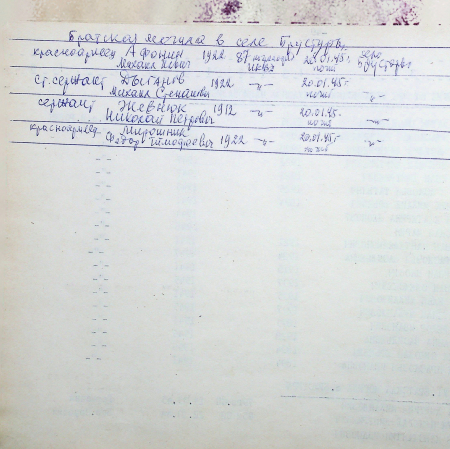 Братская могила в селе Брустуры
красноармеец Афонин 1922 87 погранотр. 20.01.45г. село
Михаил Ильич НКВД погиб Брустуры
ст. сержант Цыганов 1922 -"- 20.01.45г.
Михаил Степанович погиб -"-
сержант Жевнюк 1912 -"- 20.01.45г.
Николай Петрович погиб -"-
красноармеец Мирошник
Фёдор Тимофеевич 1922 -"- 20.01.45г. -"-
погиб